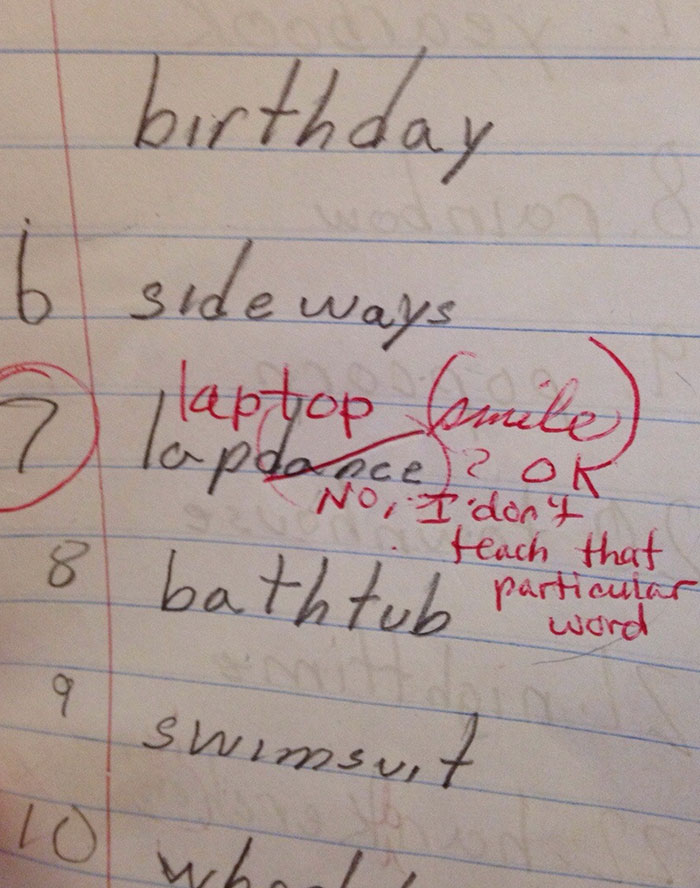 birthday
6 sideways
laptop (smile)
7 lapdance ? OK
No, I don't
teach that
8 bathtub particular
word
9 swimsuit
10